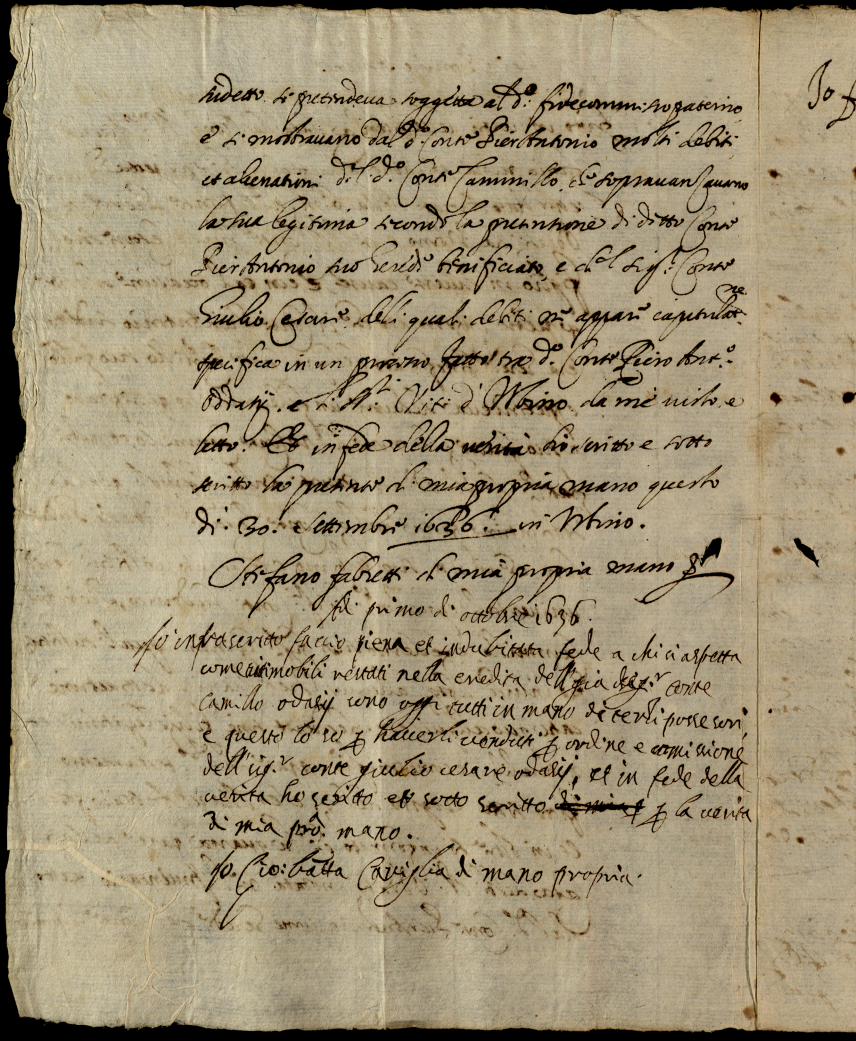 sudetto si pretendeva soggetta al d.º fidecommisso paterno
e si mostravano dal d.º Conte Pier Antonio molti debiti
et alienationi del d.º Conte Cammillo, che sopravanzavano
la sua legitima secondo la pretentione di ditto Conte
Pier Antonio suo herede benificiato, e del sig.r Conte
Giulio Cesare, delli quali debiti ne appare capitulat.ne
specifica in un processo fatto tra d.º Conte Piero Ant.º
Odasij, e Viti d'Urbino da me visto, e
letto. Et in fede della verità hò scritto e sotto
scritto la presente di mia propria mano questo
di 30. Settembre 1636. in Urbino.
Stefano fabretti di mia propria mano
Adi primo di ottobre 1636.
Io infrascritto faccio piena et indubitata fede a chi si aspetta
come mobili restati nella eredita dell già sig.r conte
Camillo odasij sono oggi tutti in mano di terzi possesori
e questo lo so p haverli venduti p ordine e comissione
dell sig.r conte giulio cesare odasij, et in fede della
verita ho scritto et sotto scritto di mia p la verita
di mia pro. mano.
Io. Gio: batta Caviglia di mano propria.
Io